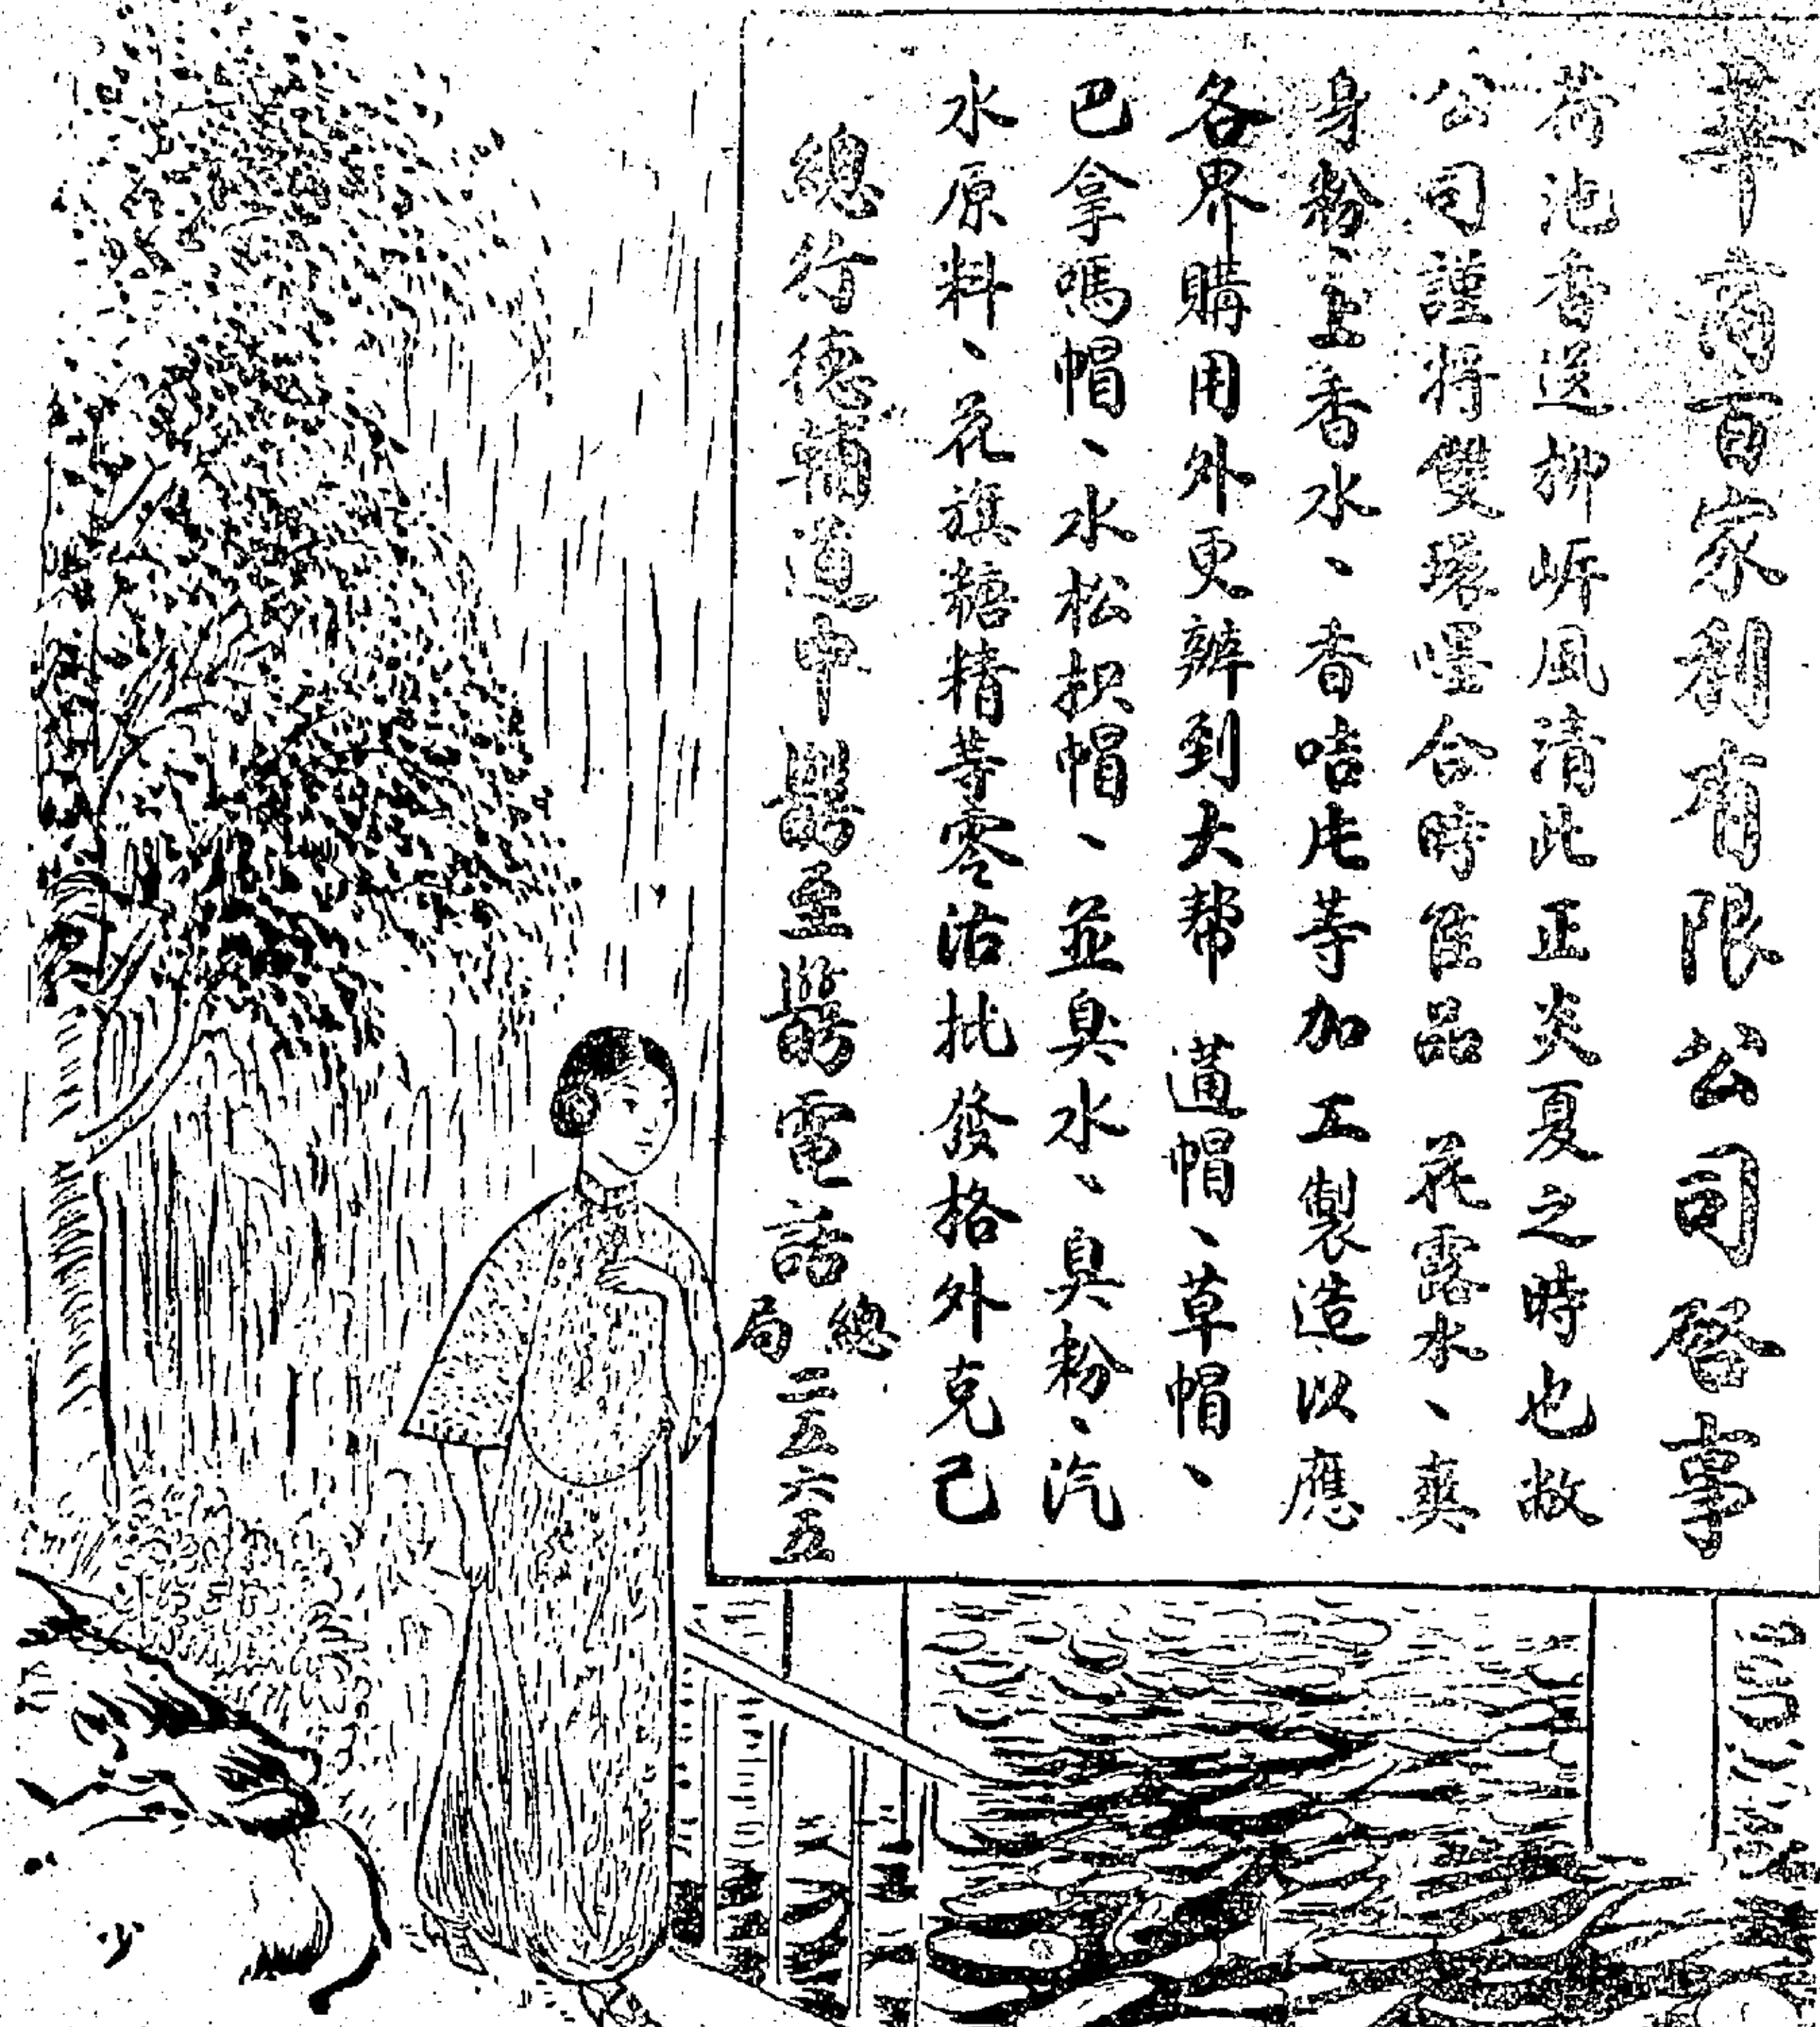 華商百家利有限公司啓事
荷池香送柳岍風清此正炎夏之時也敝
公司謹將雙環嘜合時隹品 花露水、爽
身粉、上香水、香咭片等加工製造以應
各界購用外更辦到大帮 通帽、草帽、
巴拿嗎帽、水松枳帽、並臭水、臭粉、汽
水原料、花旗糖精等零沽批發格外克己
總行德輔道中 至 電話總局二五六五